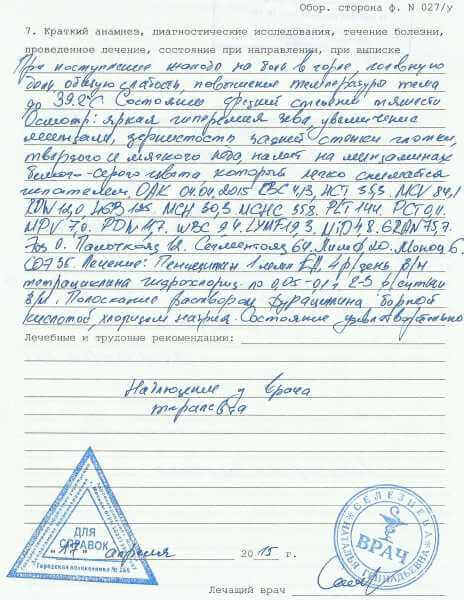 Обор. сторона ф. N 027/у
7. Краткий анамнез, диагностические исследования, течение болезни,
проведенное лечение, состояние при направлении, при выписке
При поступлении жалобы на боль в горле, головную
боль, общую слабость, повышение температуры тела
до 39,2°C Состояние средней степени тяжести
Осмотр: яркая гиперемия зева, увеличение
зернистость задней стенки глотки,
твердого и мягкого нёба, налет на миндалинах
бело-серого цвета который легко снимается
шпателем. ОАК 04.04.2015 RBC 4,13, HCT 35,3. MCV 84,1
RDW 12,0 HGB 125. MCH 30,3 MCHC 358. PLT 144. PCT 0,11.
MPV 7,6. PDW 11,7. WBC 9,4. LYMF 19,3. MID 4,8. GRAN 75,7.
Эоз 0. Палочкояд 12. Сегментояд 64. Лимф 20. Моноц 6.
СОЭ 35. Лечение: 1 млн ЕД 4 р/день в/м
тетрациклина гидрохлорид по 0,05-0,1 г 2-3 р/сутки
в/м. Полоскание раствором фурацилина, борной
кислотой, натрия. Состояние удовлетворительно
Лечебные и трудовые рекомендации:
Наблюдение у врача
терапевта
ДЛЯ
СПРАВОК
Городская поликлиника №
"17" апреля 2015 г.
СЕЛЕЗНЕВА
НАТАЛЬЯ ГЕННАДЬЕВНА
ВРАЧ
Лечащий врач